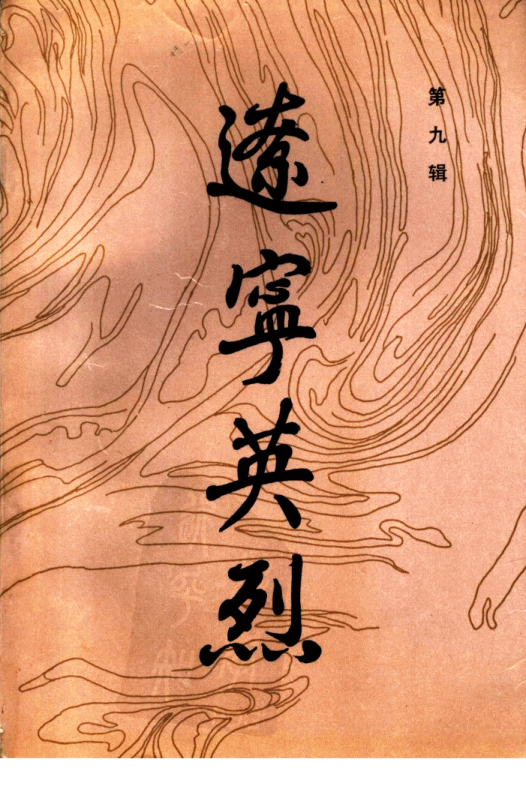 第九辑
遼寧英烈